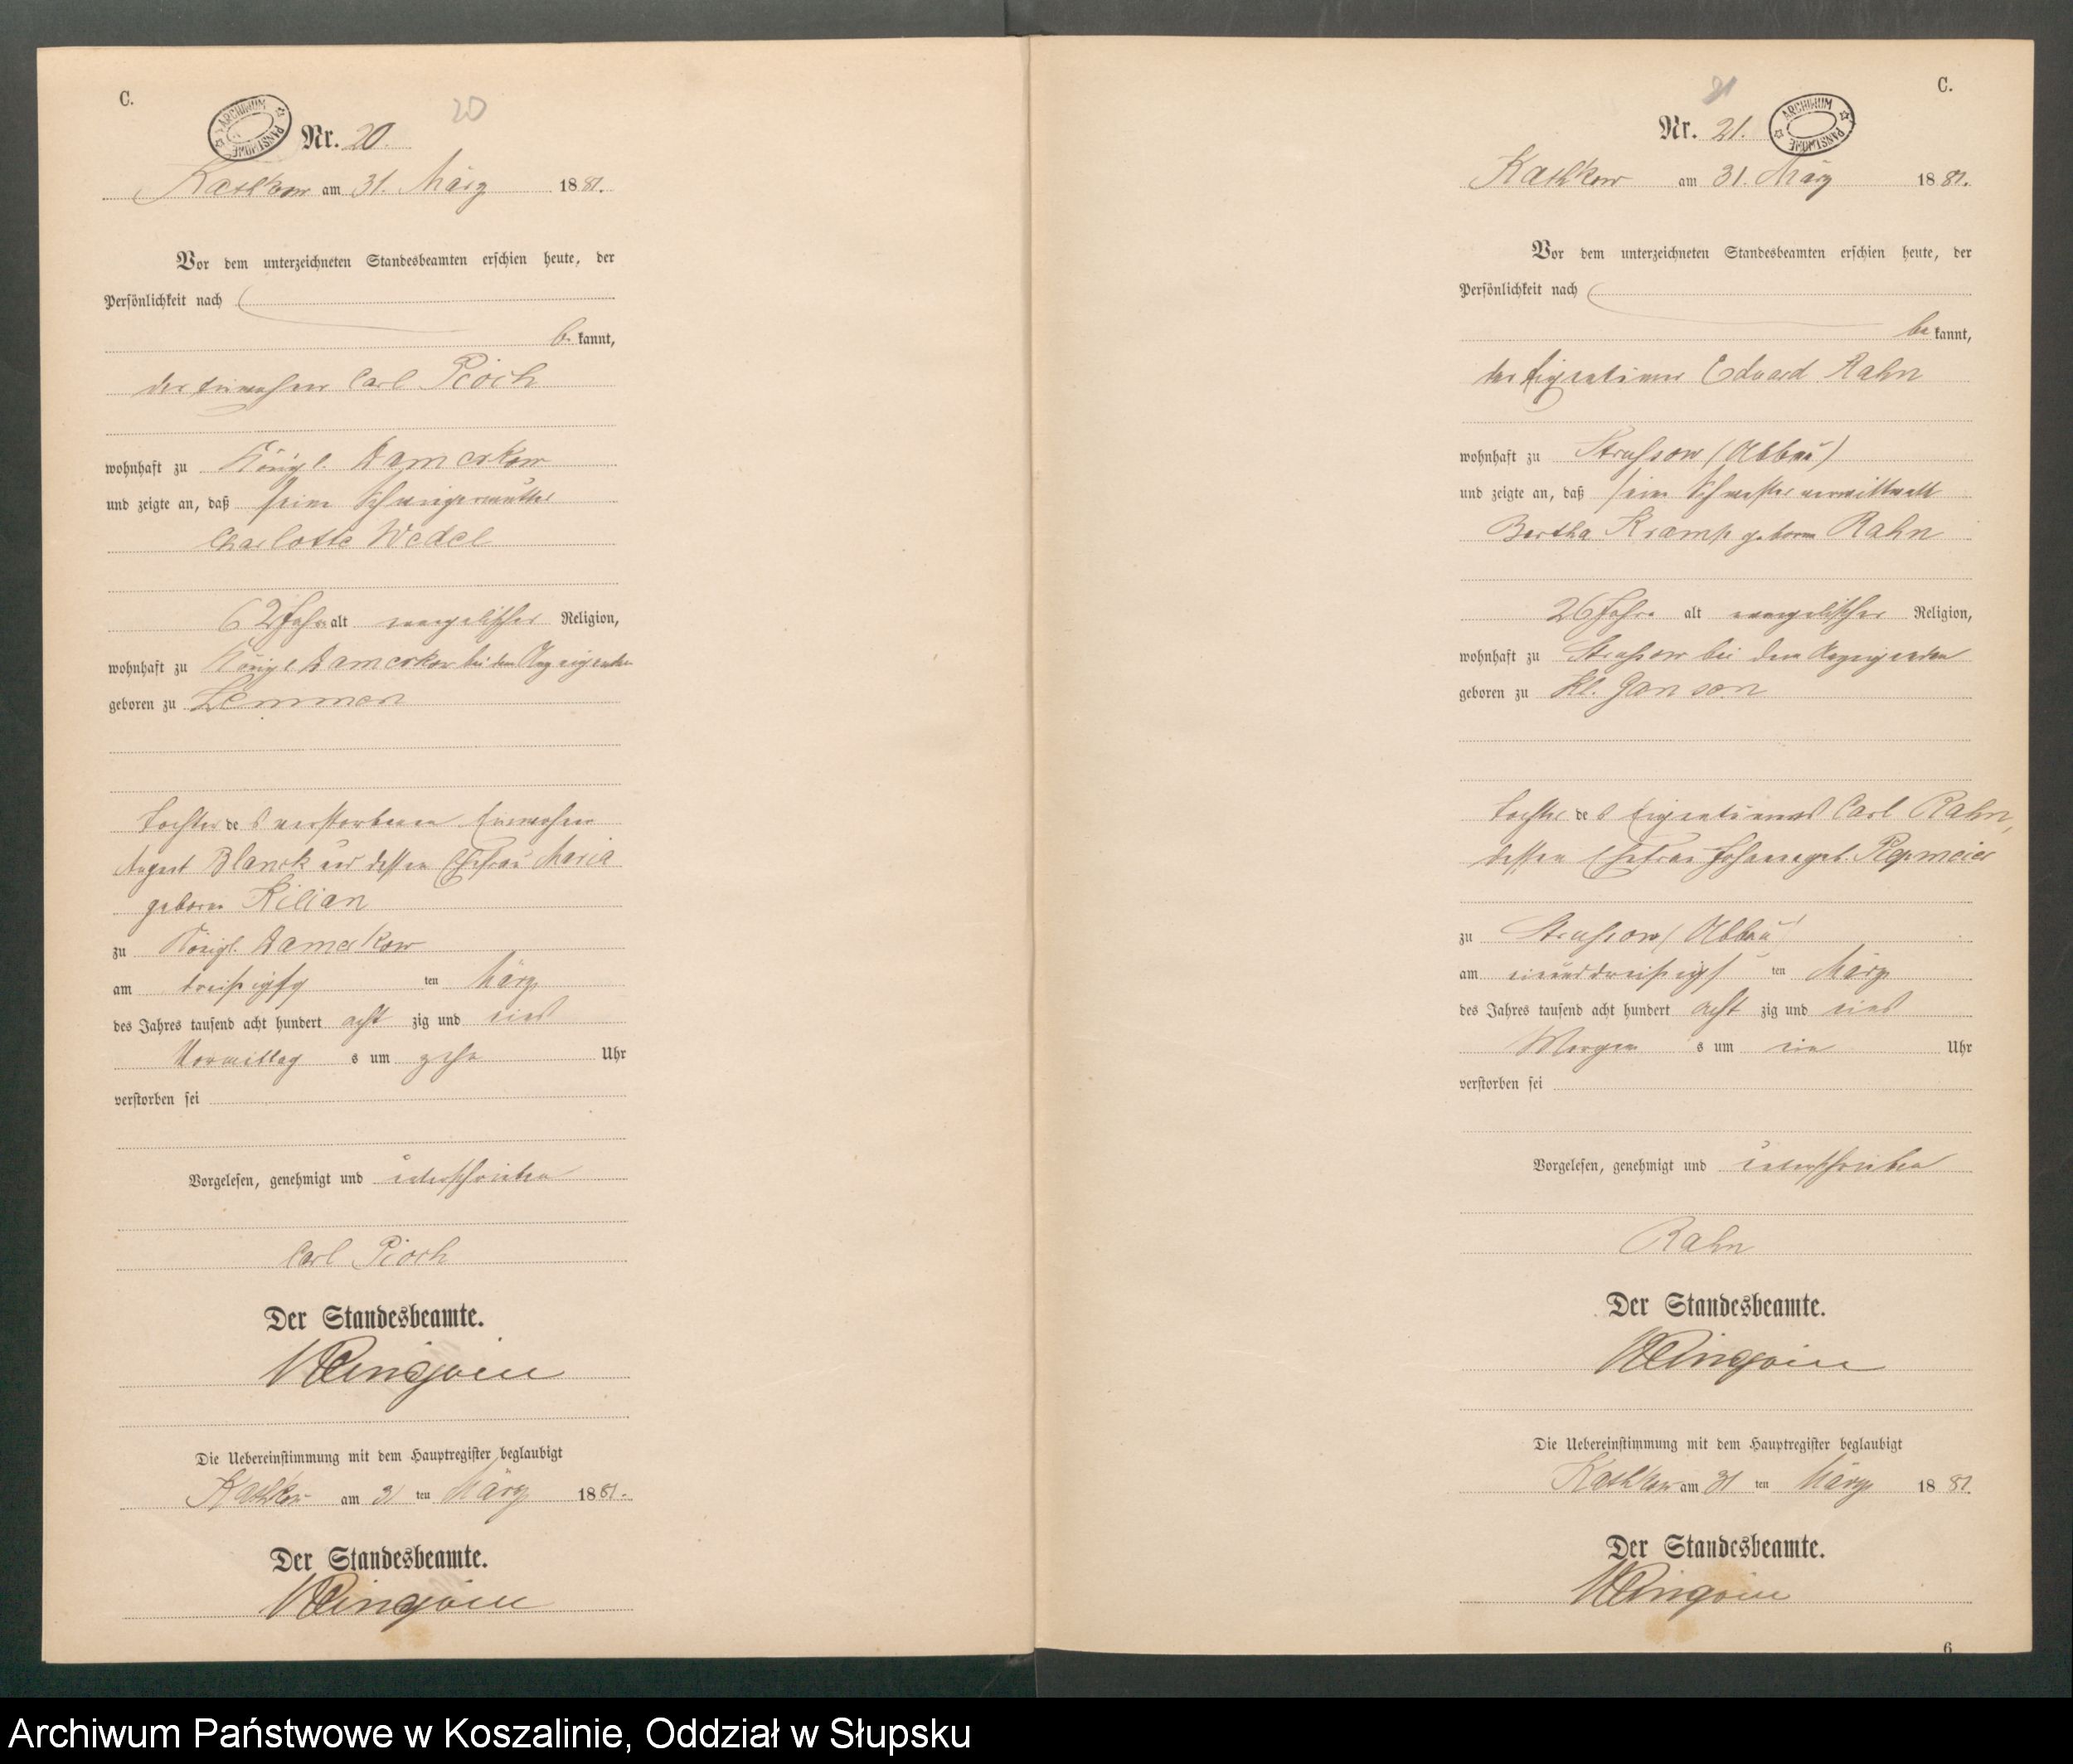 C.
ARCHIWUM PAŃSTWOWE
20
Nr. 20.
Kathkow am 31. März 1881.
Vor dem unterzeichneten Standesbeamten erschien heute, der
Persönlichkeit nach
be kannt,
der Einwohner Carl Pioch
wohnhaft zu Königl. Damerkow
und zeigte an, daß seine Schwiegermutter
Charlotte Wedel
62 Jahr alt evangelischer Religion,
wohnhaft zu Königl. Damerkow bei dem Anzeigenden
geboren zu
Tochter des verstorbenen Einwohner
August Blanck und dessen Ehefrau Maria
geborne Kilian
zu Königl. Damerkow
am dreißigsten März
des Jahres tausend acht hundert acht zig und eins
Vormittag s um zehn Uhr
verstorben sei
Vorgelesen, genehmigt und unterschrieben
Carl Pioch
Der Standesbeamte.
Die Uebereinstimmung mit dem Hauptregister beglaubigt
Kathkow am 31 ten März 1881.
Der Standesbeamte.
C.
21
ARCHIWUM PAŃSTWOWE
Nr. 21.
Kathkow am 31. März 1881.
Vor dem unterzeichneten Standesbeamten erschien heute, der
Persönlichkeit nach
be kannt,
der Eigenthümer Eduard Rahn
wohnhaft zu Strussow (Abbau)
und zeigte an, daß seine Schwester verwittwete
Bertha Kramp geborne Rahn
26 Jahre alt evangelischer Religion,
wohnhaft zu Strussow bei dem Anzeigenden
geboren zu Kl. Gansen
Tochter des Eigenthümers Carl Rahn,
dessen Ehefrau Johanne geb. Piepmeier
zu Strussow (Abbau)
am einunddreißigsten März
des Jahres tausend acht hundert acht zig und eins
Morgen s um ein Uhr
verstorben sei
Vorgelesen, genehmigt und unterschrieben
Rahn
Der Standesbeamte.
Die Uebereinstimmung mit dem Hauptregister beglaubigt
Kathkow am 31 ten März 1881.
Der Standesbeamte.
6
Archiwum Państwowe w Koszalinie, Oddział w Słupsku